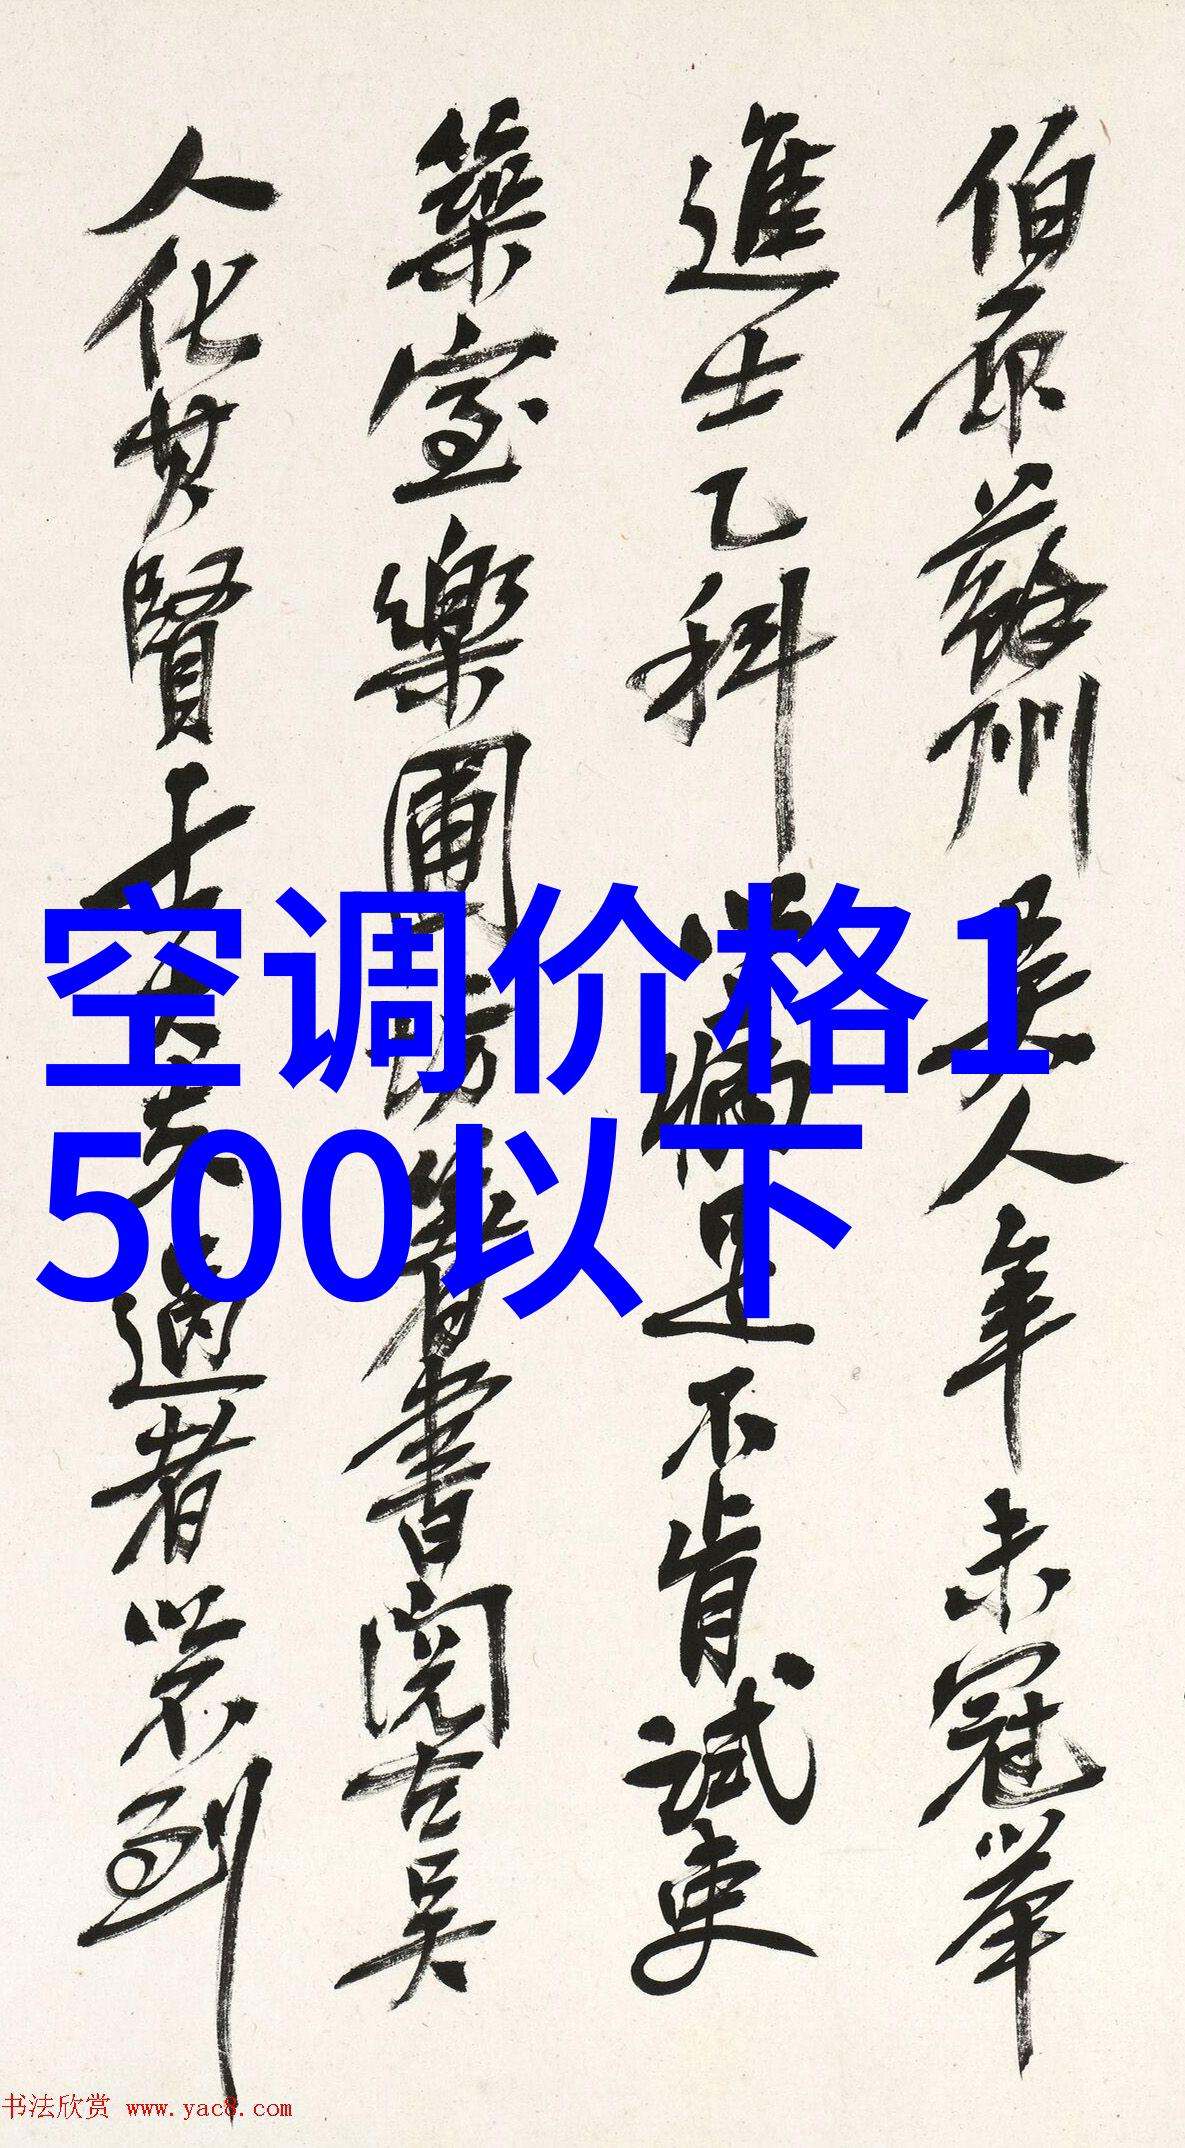 伯原蘇州吳人年未冠舉
進士乙科以病足不肯試吏
築室樂圃坊著書閱古吳
人化其賢士大夫過者以不到
空调价格1
500以下
书法欣赏 www.yac8.com